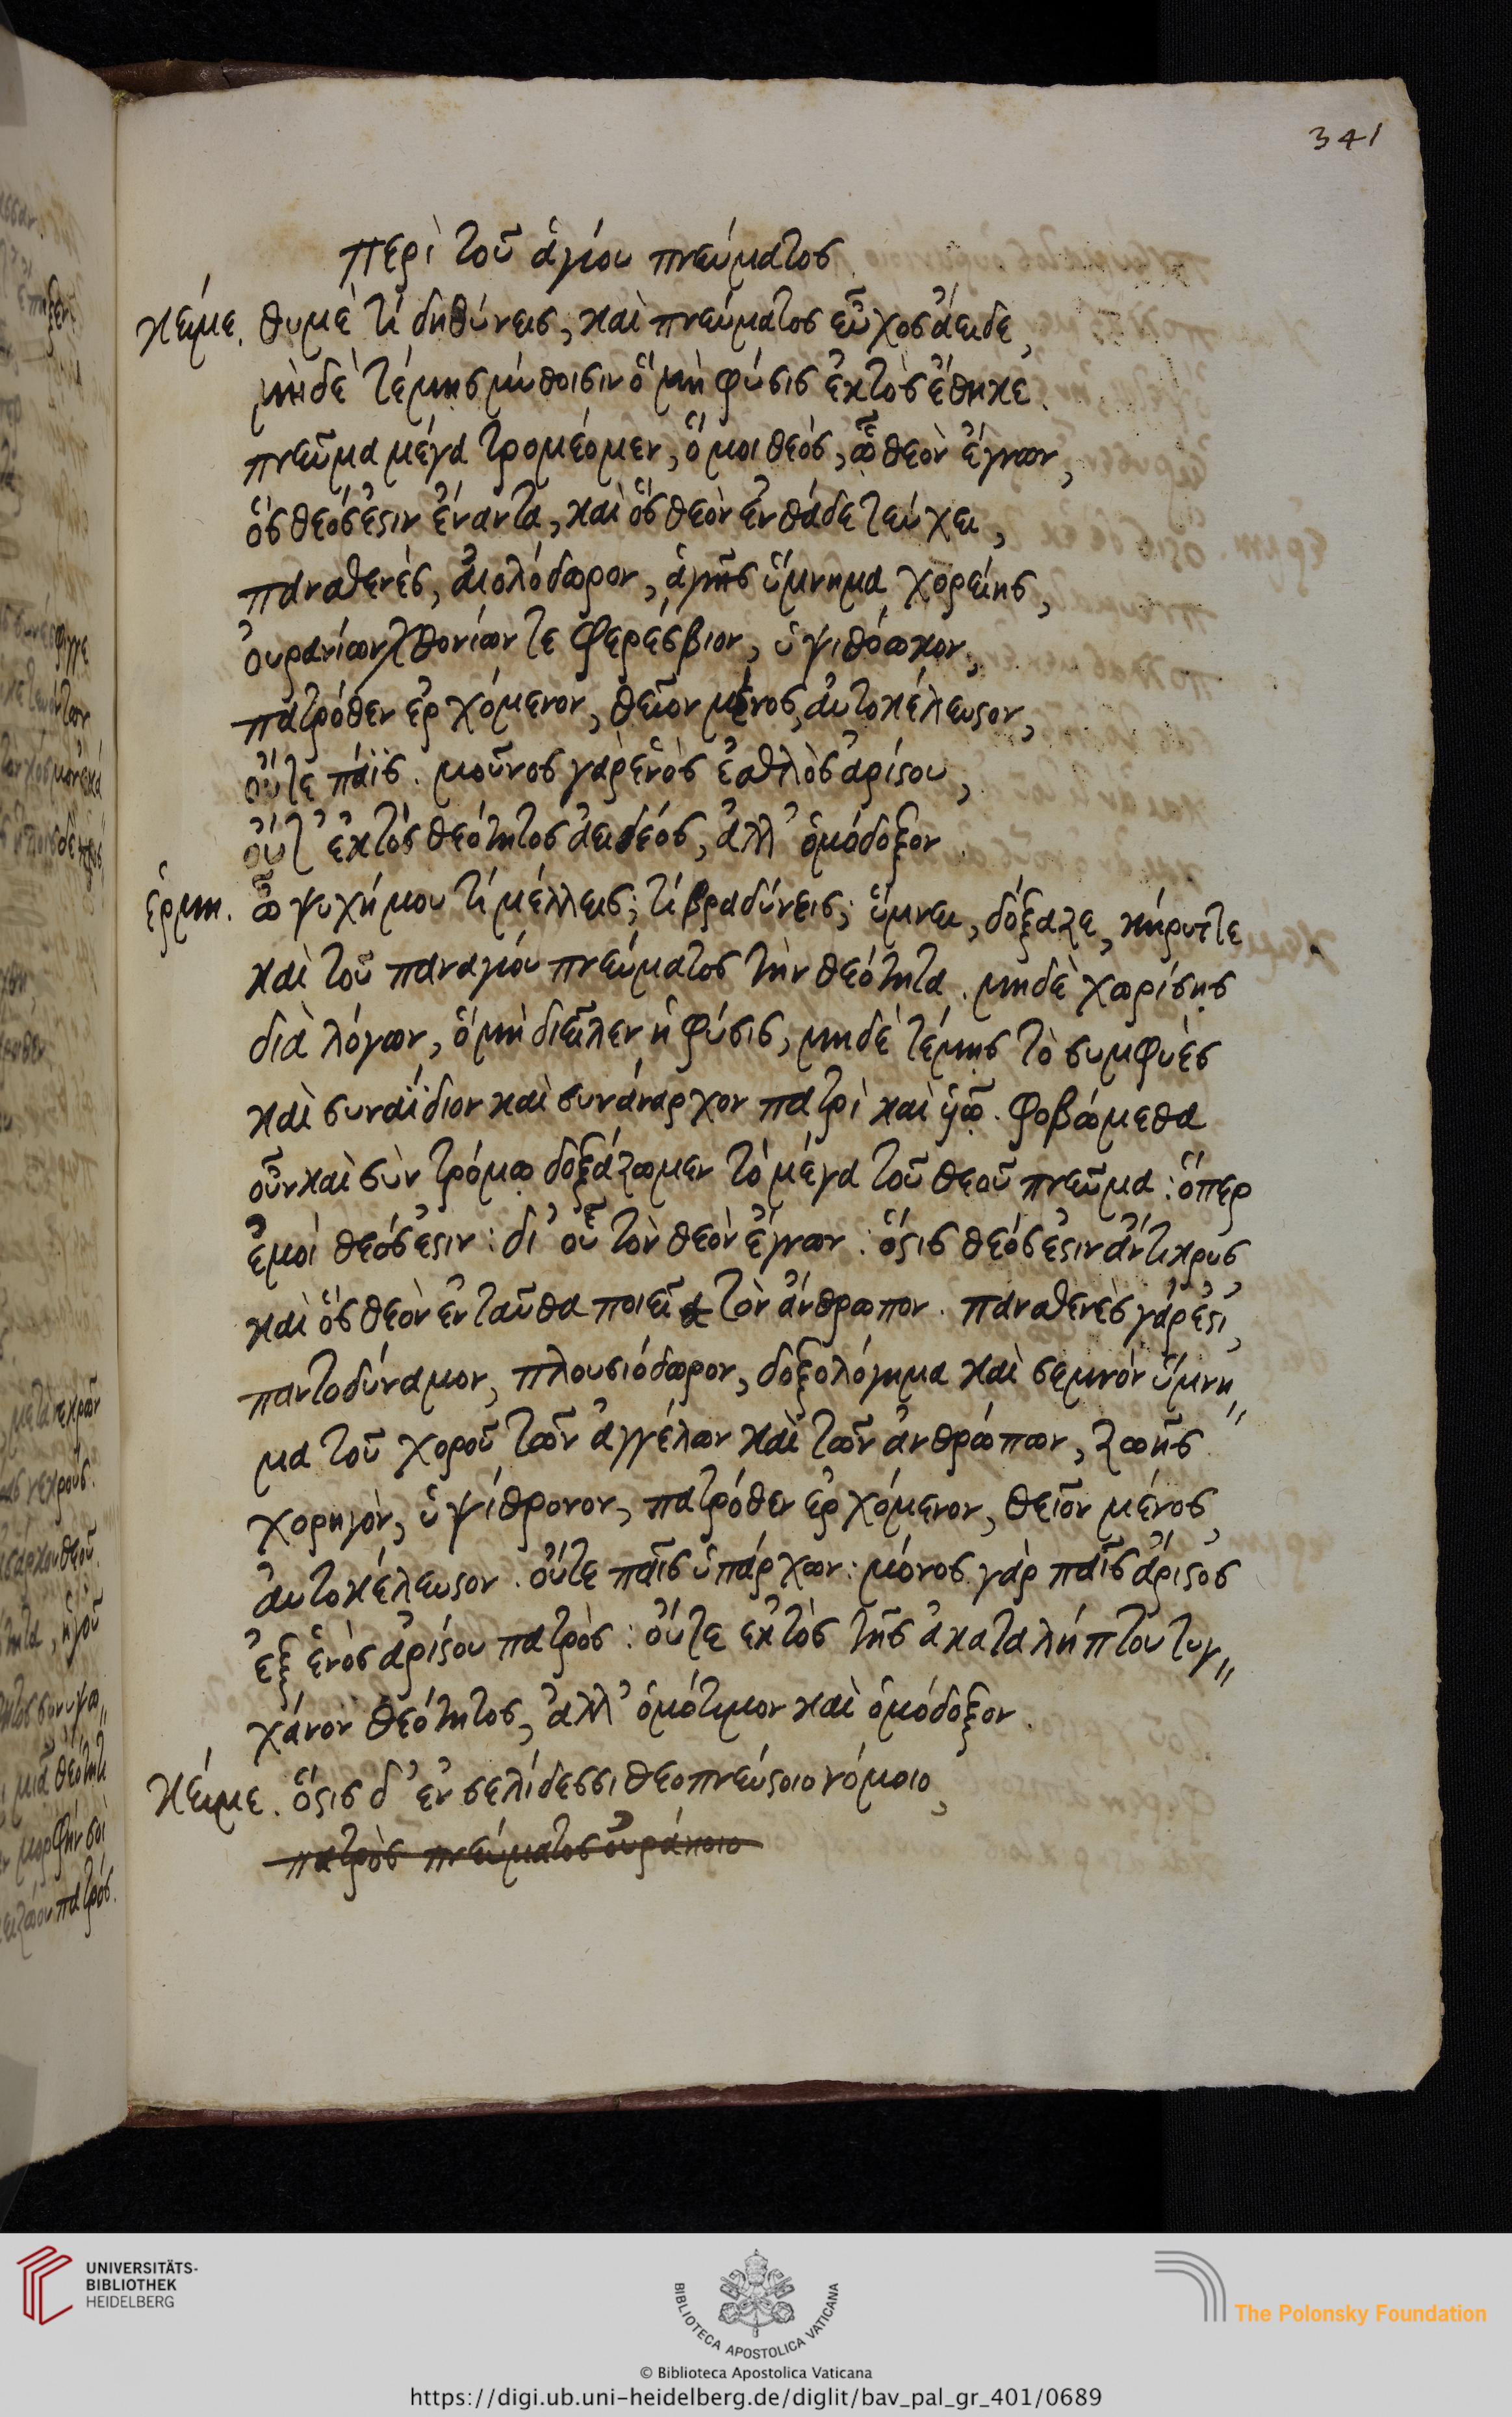 341
περὶ τοῦ ἁγίου πνεύματος
κείμε. θυμὲ τί δηθύνεις, καὶ πνεύματος εὖχος ἄειδε,
μηδὲ τέμῃς μύθοισιν ὃ μὴ φύσις ἐκτὸς ἔθηκε.
πνεῦμα μέγα τρομέομεν, ὅ μοι θεός, ᾧ θεὸν ἔγνων,
ὃς θεός ἐστιν ἔναντα, καὶ ὃς θεὸν ἐνθάδε τεύχει,
πανσθενὲς, αἰολόδωρον, ἁγνῆς ὕμνημα χορείης,
οὐρανίων χθονίων τε φερέσβιον, ὑψιθόωκον,
πατρόθεν ἐρχόμενον, θεῖον μένος, αὐτοκέλευστον,
οὔτε πάϊς. μοῦνος γὰρ ἑνὸς ἐσθλὸς ἀρίστου,
οὔτ' ἐκτὸς θεότητος ἀειδέος, ἀλλ' ὁμόδοξον.
ἑρμη. ὦ ψυχή μου τί μέλλεις; τί βραδύνεις; ὕμνει, δόξαζε, κήρυττε
καὶ τοῦ παναγίου πνεύματος τὴν θεότητα. μηδὲ χωρίσῃς
διὰ λόγων, ὃ μὴ διεῖλεν ἡ φύσις, μηδὲ τέμῃς τὸ συμφυὲς
καὶ συναΐδιον καὶ συνάναρχον πατρὶ καὶ υἱῷ. φοβώμεθα
οὖν καὶ σὺν τρόμῳ δοξάζωμεν τὸ μέγα τοῦ θεοῦ πνεῦμα: ὅπερ
ἐμοὶ θεός ἐστιν: δι' οὗ τὸν θεὸν ἔγνων: ὅστις θεός ἐστιν ἄντικρυς
καὶ ὃς θεὸν ἐνταῦθα ποιεῖ τὸν ἄνθρωπον. πανσθενὲς γάρ ἐστι,
παντοδύναμον, πλουσιόδωρον, δοξολόγημα καὶ σεμνὸν ὕμνη=
μα τοῦ χοροῦ τῶν ἀγγέλων καὶ τῶν ἀνθρώπων, ζωῆς
χορηγὸν, ὑψίθρονον, πατρόθεν ἐρχόμενον, θεῖον μένος,
αὐτοκέλευστον. οὔτε παῖς ὑπάρχων: μόνος γὰρ παῖς ἄριστος
ἐξ ἑνὸς ἀρίστου πατρὸς: οὔτε ἐκτὸς τῆς ἀκαταλήπτου τυγ=
χάνον θεότητος, ἀλλ' ὁμότιμον καὶ ὁμόδοξον.
κείμε. ὅστις δ' ἐν σελίδεσσι θεοπνεύστοιο νόμοιο,
πατρὸς πνεύματος οὐρανίοιο
UNIVERSITÄTS-
BIBLIOTHEK
HEIDELBERG
BIBLIOTECA APOSTOLICA VATICANA
The Polonsky Foundation
© Biblioteca Apostolica Vaticana
https://digi.ub.uni-heidelberg.de/diglit/bav_pal_gr_401/0689